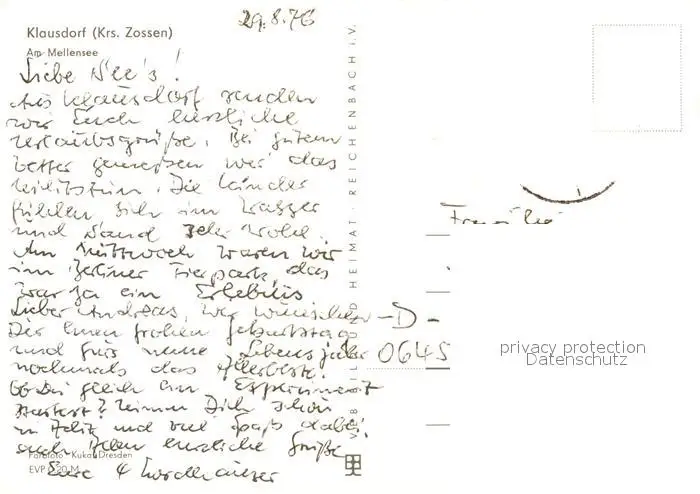 29.8.76
Klausdorf (Krs. Zossen)
Am Mellensee
Liebe Nee's!
Aus Klausdorf senden
wir Euch herzliche
Urlaubsgrüße. Bei gutem
Wetter genießen wir das
Nichtstun. Die Kinder
fühlen sich im Wasser
und Sand sehr wohl.
Am Mittwoch waren wir
im Berliner Tierpark, das
war ja ein Erlebnis
Lieber Andreas, wir wünschen
Dir einen frohen Geburtstag
und fürs neue Lebensjahr
nochmals das Allerbeste.
Ob Du gleich ein Experiment
startest? Nimm Dich schön
in Acht und viel Spaß dabei!
Euch allen herzliche Grüße
Eure 4 Nordhäuser
Farbfoto Kukat Dresden
EVP 0,20 M
VEB BILD UND HEIMAT REICHENBACH I. V.
Familie
-D-
0645
privacy protection
Datenschutz